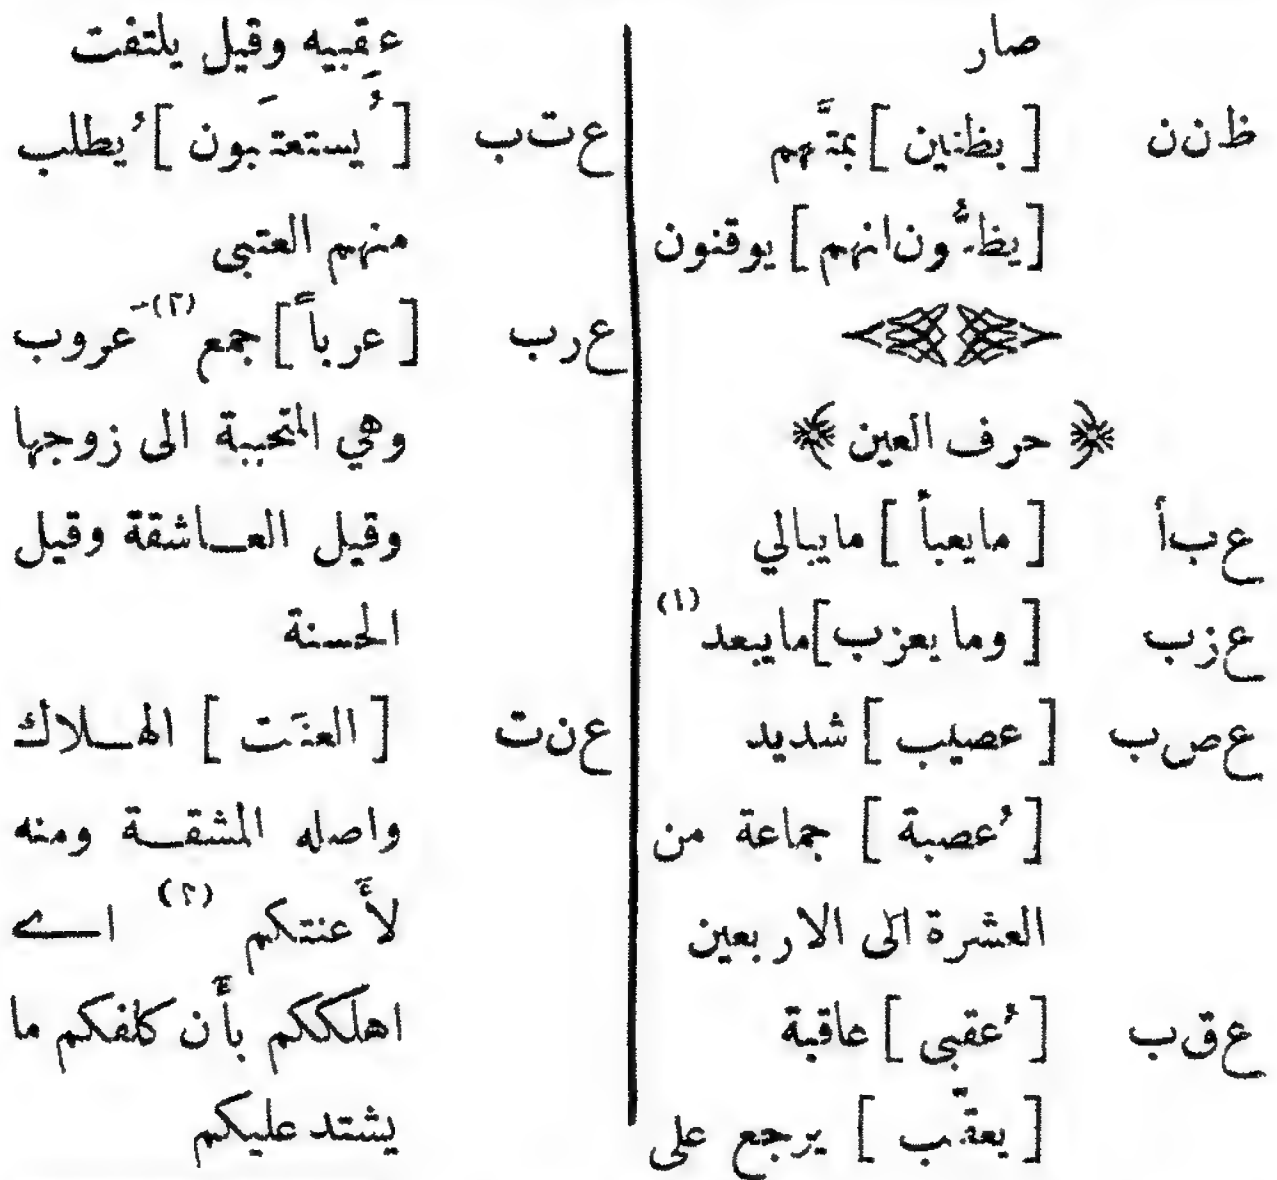 صار
ظ ن ن [ بظنين ] بمتَّهم
[يظنُّون انهم] يوقنون
﴿ حرف العين ﴾
ع ب أ [ مايعبأ ] مايبالي
ع ز ب [ وما يعزب] مايبعد (١)
ع ص ب [ عصيب ] شديد
[ عُصبة ] جماعة من
العشرة الى الاربعين
ع ق ب [ عُقبى ] عاقبة
[ يعقّب ] يرجع على
عقِبيه وقيل يلتفت
ع ت ب [ يُستعتَبون ] يُطلب
منهم العتبى
ع ر ب [ عرباً ] جمع (٢) عروب
وهي المتحببة الى زوجها
وقيل العـاشقة وقيل
الحسنة
ع ن ت [ العنَت ] الهـلاك
واصله المشقـة ومنه
لأَعنتكم (٢) اـے
اهلككم بأَن كلفكم ما
يشتد عليكم